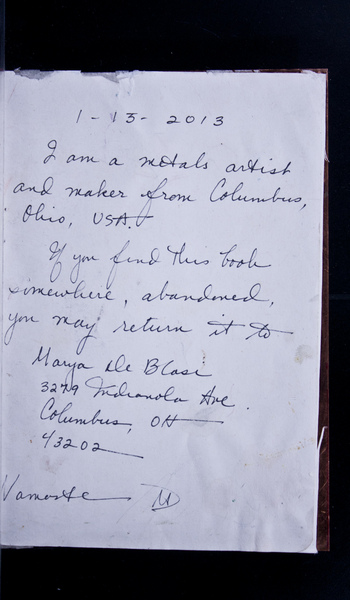 1-15-2013
I am a metals artist
and maker from Columbus,
Ohio, USA.
If you find this book
somewhere, abandoned,
you may return it to
Marya De Blasi
3279 Indianola Ave.
Columbus, OH
43202
Namaste M